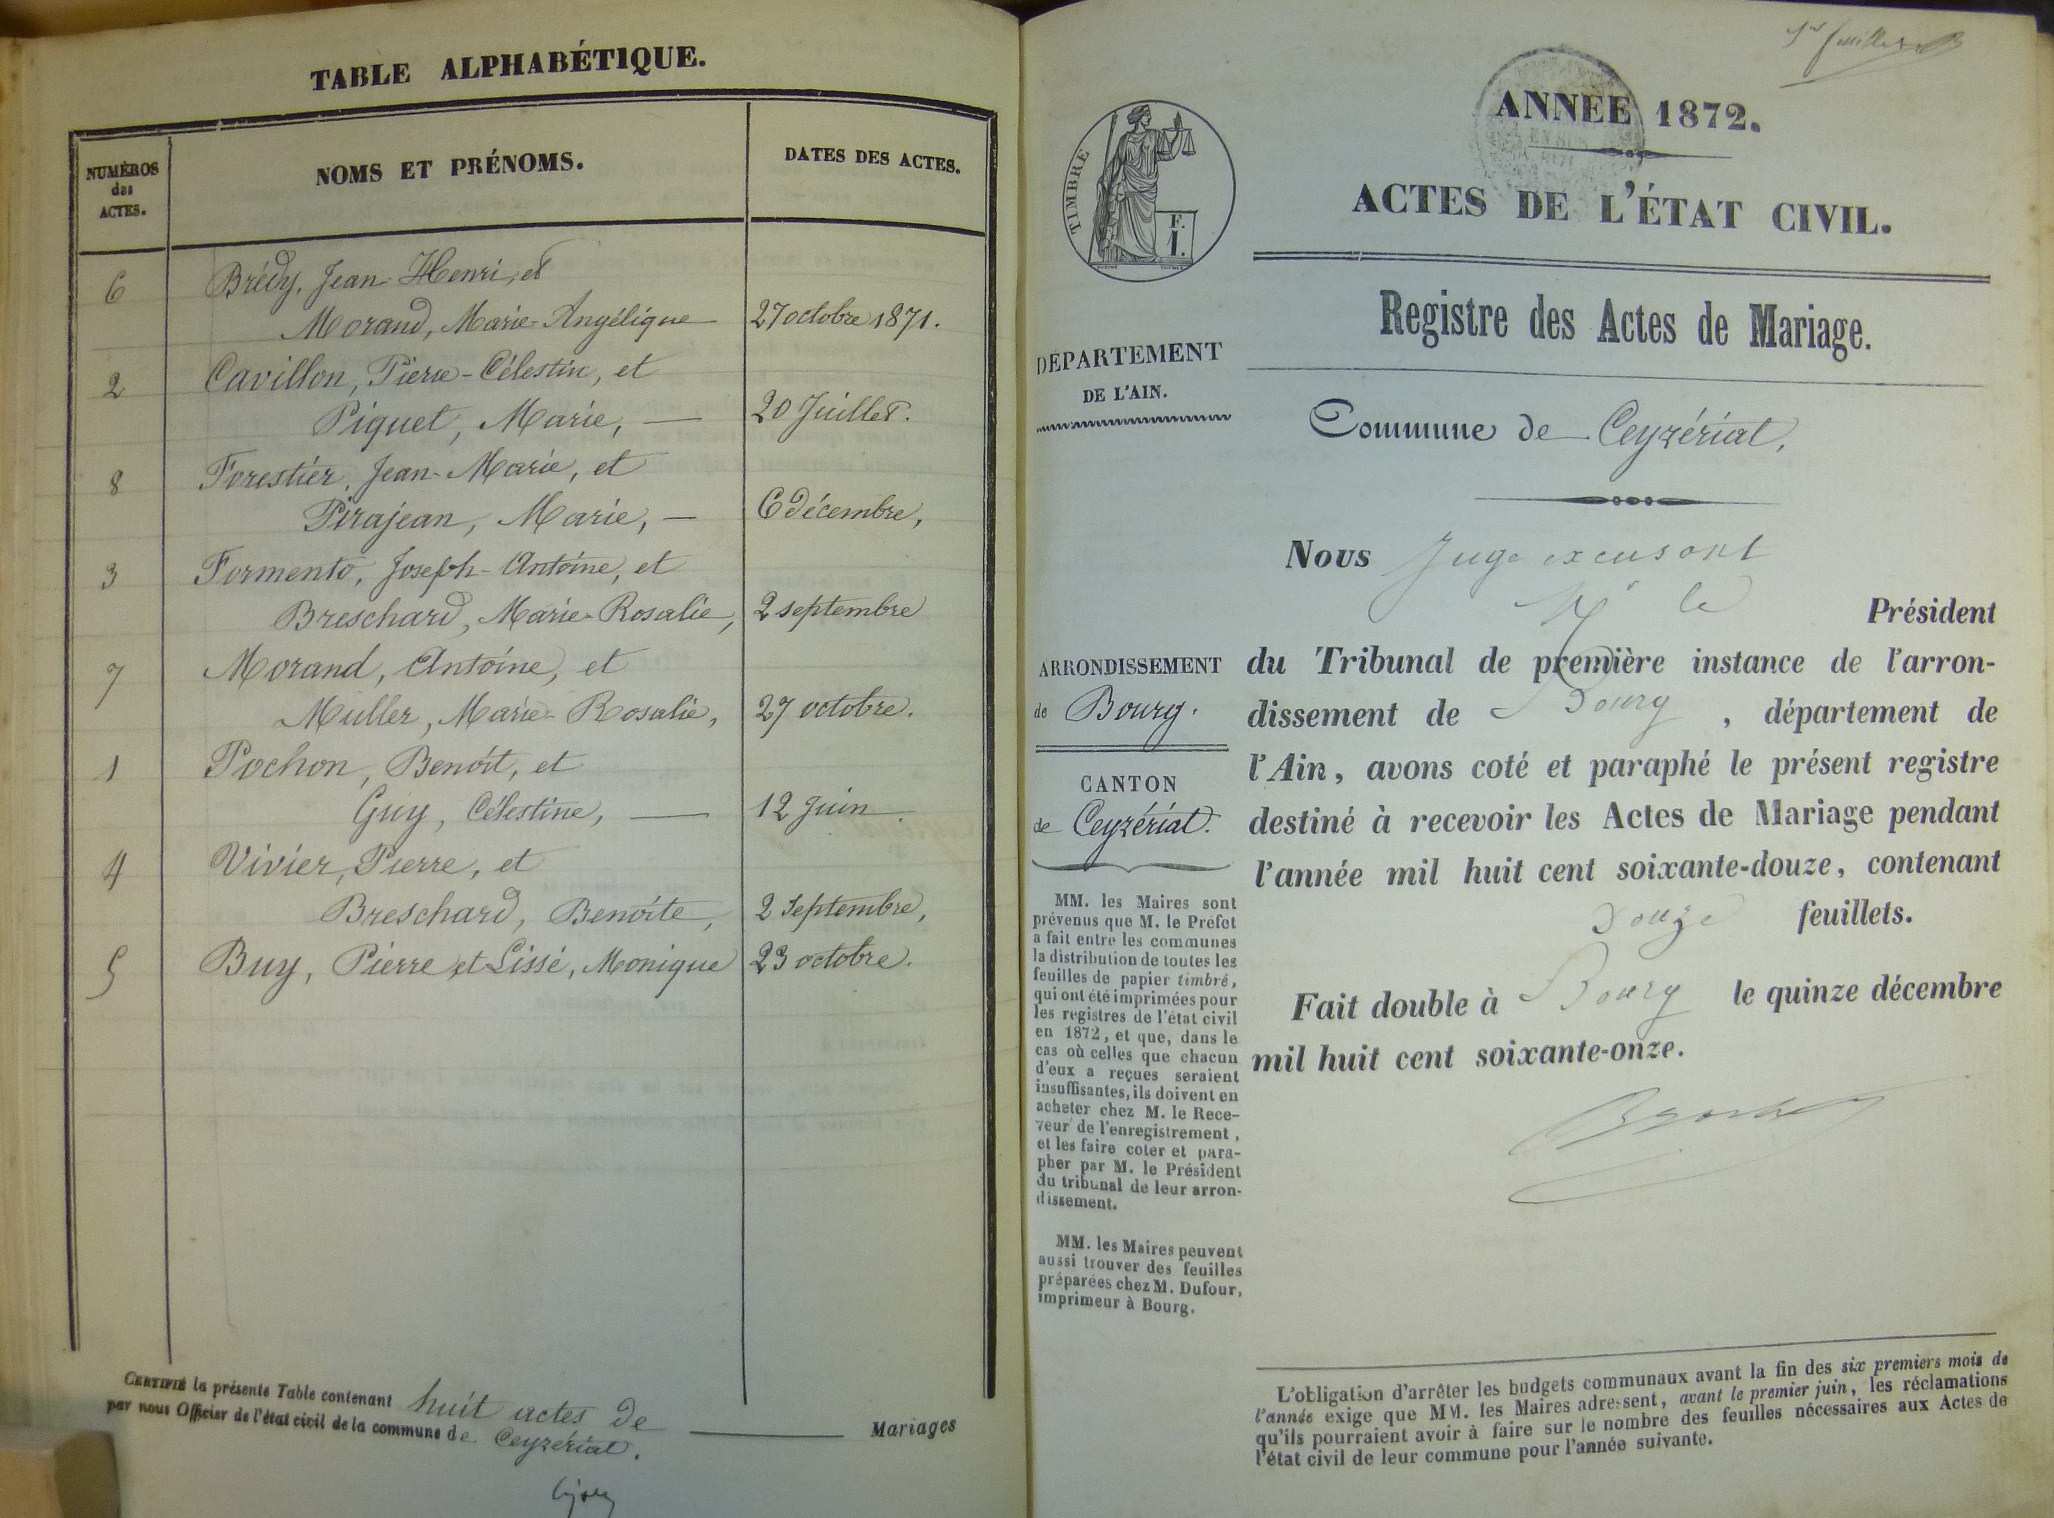 TABLE ALPHABÉTIQUE.
NUMÉROS
des
ACTES.
NOMS ET PRÉNOMS.
DATES DES ACTES.
6 Brédy, Jean-Henri, et
Morand, Marie-Angélique 27 octobre 1871.
2 Cavillon, Pierre-Célestin, et
Piquet, Marie, — 20 Juillet.
8 Forestier, Jean-Marie, et
Pirajean, Marie, — 6 décembre,
3 Formento, Joseph-Antoine, et
Breschard, Marie-Rosalie, 2 septembre
7 Morand, Antoine, et
Muller, Marie-Rosalie, 27 octobre.
1 Pochon, Benoît, et
Guy, Célestine, — 12 Juin.
4 Vivier, Pierre, et
Breschard, Benoîte, 2 Septembre,
5 Buy, Pierre et Lissé, Monique 23 octobre.
CERTIFIÉ la présente Table contenant huit actes de Mariages
par nous Officier de l'état civil de la commune de Ceyzériat.
1er feuillet
ANNÉE 1872.
TIMBRE
F.
1.
ACTES DE L'ÉTAT CIVIL.
Registre des Actes de Mariage.
DÉPARTEMENT
DE L'AIN.
Commune de Ceyzériat,
Nous Juge excusant
Mr le Président
du Tribunal de première instance de l'arron-
dissement de Bourg, département de
l'Ain, avons coté et paraphé le présent registre
destiné à recevoir les Actes de Mariage pendant
l'année mil huit cent soixante-douze, contenant
Douze feuillets.
Fait double à Bourg le quinze décembre
mil huit cent soixante-onze.
ARRONDISSEMENT
de Bourg.
CANTON
de Ceyzériat.
MM. les Maires sont
prévenus que M. le Préfet
a fait entre les communes
la distribution de toutes les
feuilles de papier timbré,
qui ont été imprimées pour
les registres de l'état civil
en 1872, et que, dans le
cas où celles que chacun
d'eux a reçues seraient
insuffisantes, ils doivent en
acheter chez M. le Rece-
veur de l'enregistrement,
et les faire coter et para-
pher par M. le Président
du tribunal de leur arron-
dissement.
MM. les Maires peuvent
aussi trouver des feuilles
préparées chez M. Dufour,
imprimeur à Bourg.
L'obligation d'arrêter les budgets communaux avant la fin des six premiers mois de
l'année exige que MM. les Maires adressent, avant le premier juin, les réclamations
qu'ils pourraient avoir à faire sur le nombre des feuilles nécessaires aux Actes de
l'état civil de leur commune pour l'année suivante.